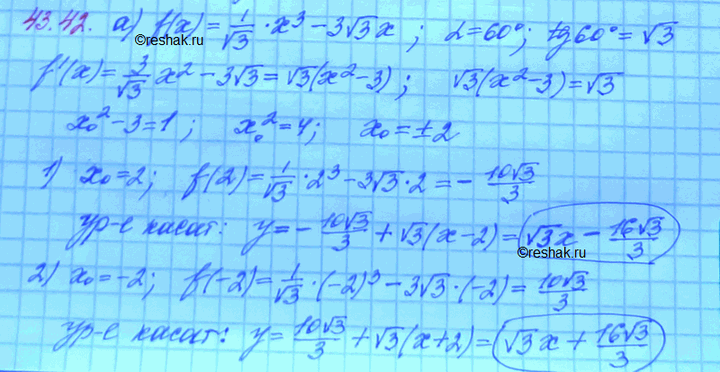 43.42. а) f(x) = 1/√3 · x³ − 3√3x ; α = 60° ; tg60° = √3
©reshak.ru
f'(x) = 3/√3 x² − 3√3 = √3(x² − 3) ; √3(x² − 3) = √3
x₀² − 3 = 1 ; x₀² = 4 ; x₀ = ±2
1) x₀ = 2 ; f(2) = 1/√3 · 2³ − 3√3 · 2 = − 10√3/3
ур-е касат: y = − 10√3/3 + √3(x − 2) = √3x − 16√3/3
2) x₀ = −2 ; f(−2) = 1/√3 · (−2)³ − 3√3 · (−2) = 10√3/3
ур-е касат: y = 10√3/3 + √3(x + 2) = √3x + 16√3/3
©reshak.ru